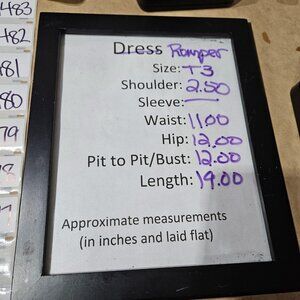 483
482
81
80
79
Dress Romper
Size: T3
Shoulder: 2.50
Sleeve: —
Waist: 11.00
Hip: 12.00
Pit to Pit/Bust: 12.00
Length: 19.00
Approximate measurements
(in inches and laid flat)